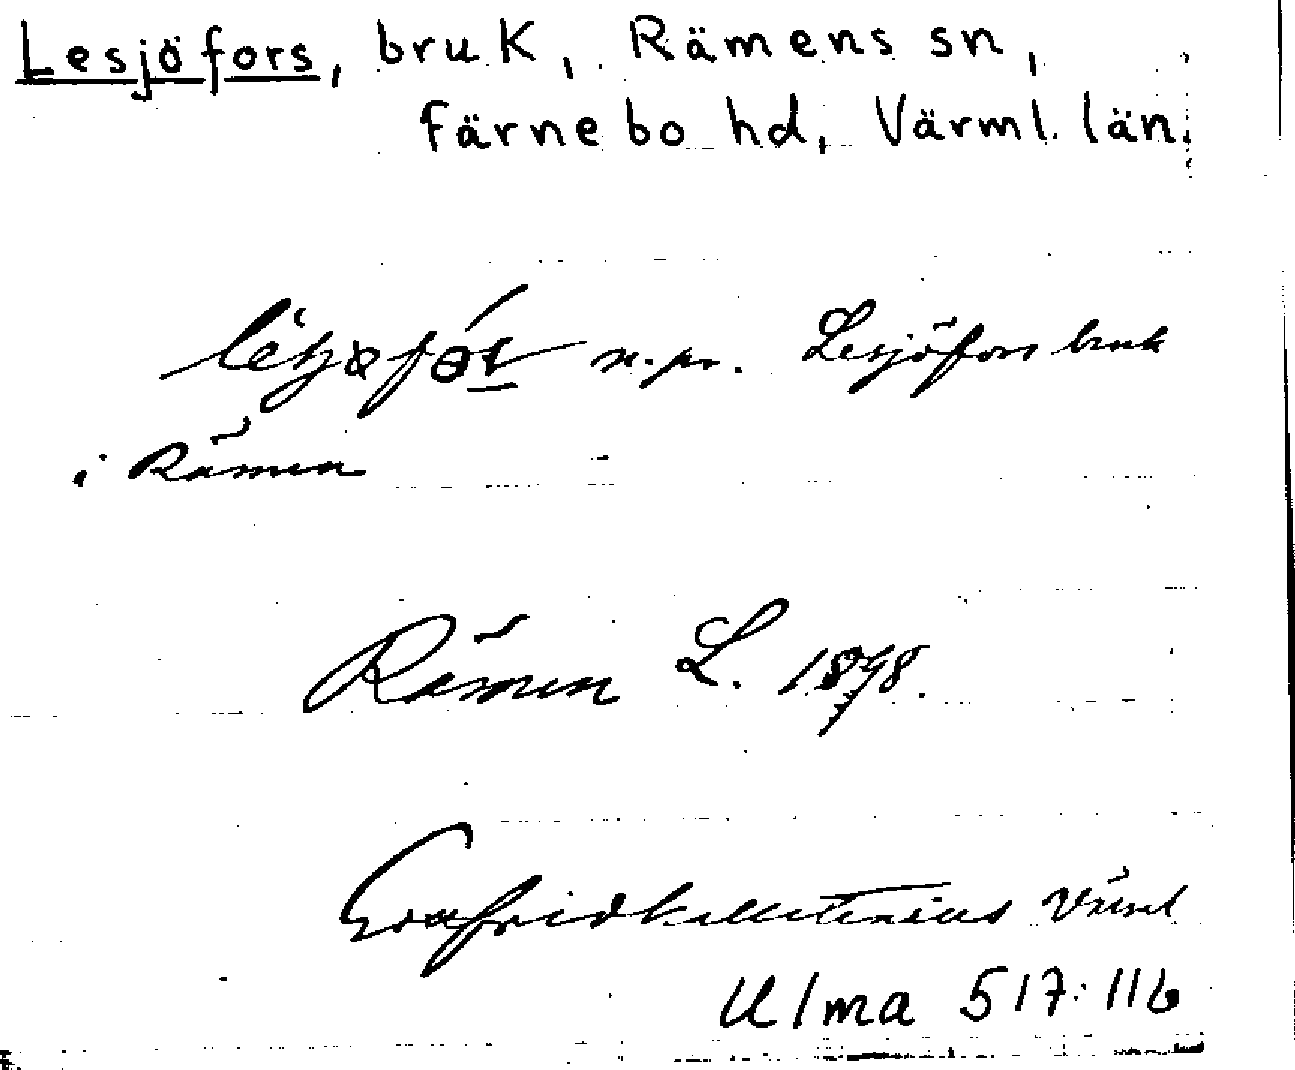 Lesjöfors, bruk, Rämens sn,
Färnebo hd, Värml. län.
n. pr. Lesjöfors bruk
i Rämen
Rämen L. 1898.
Värml
Ulma 517:116